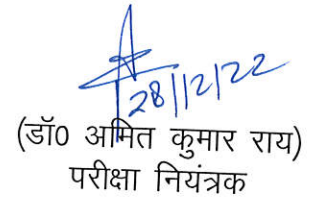 28/12/22
(डॉ0 अमित कुमार राय)
परीक्षा नियंत्रक